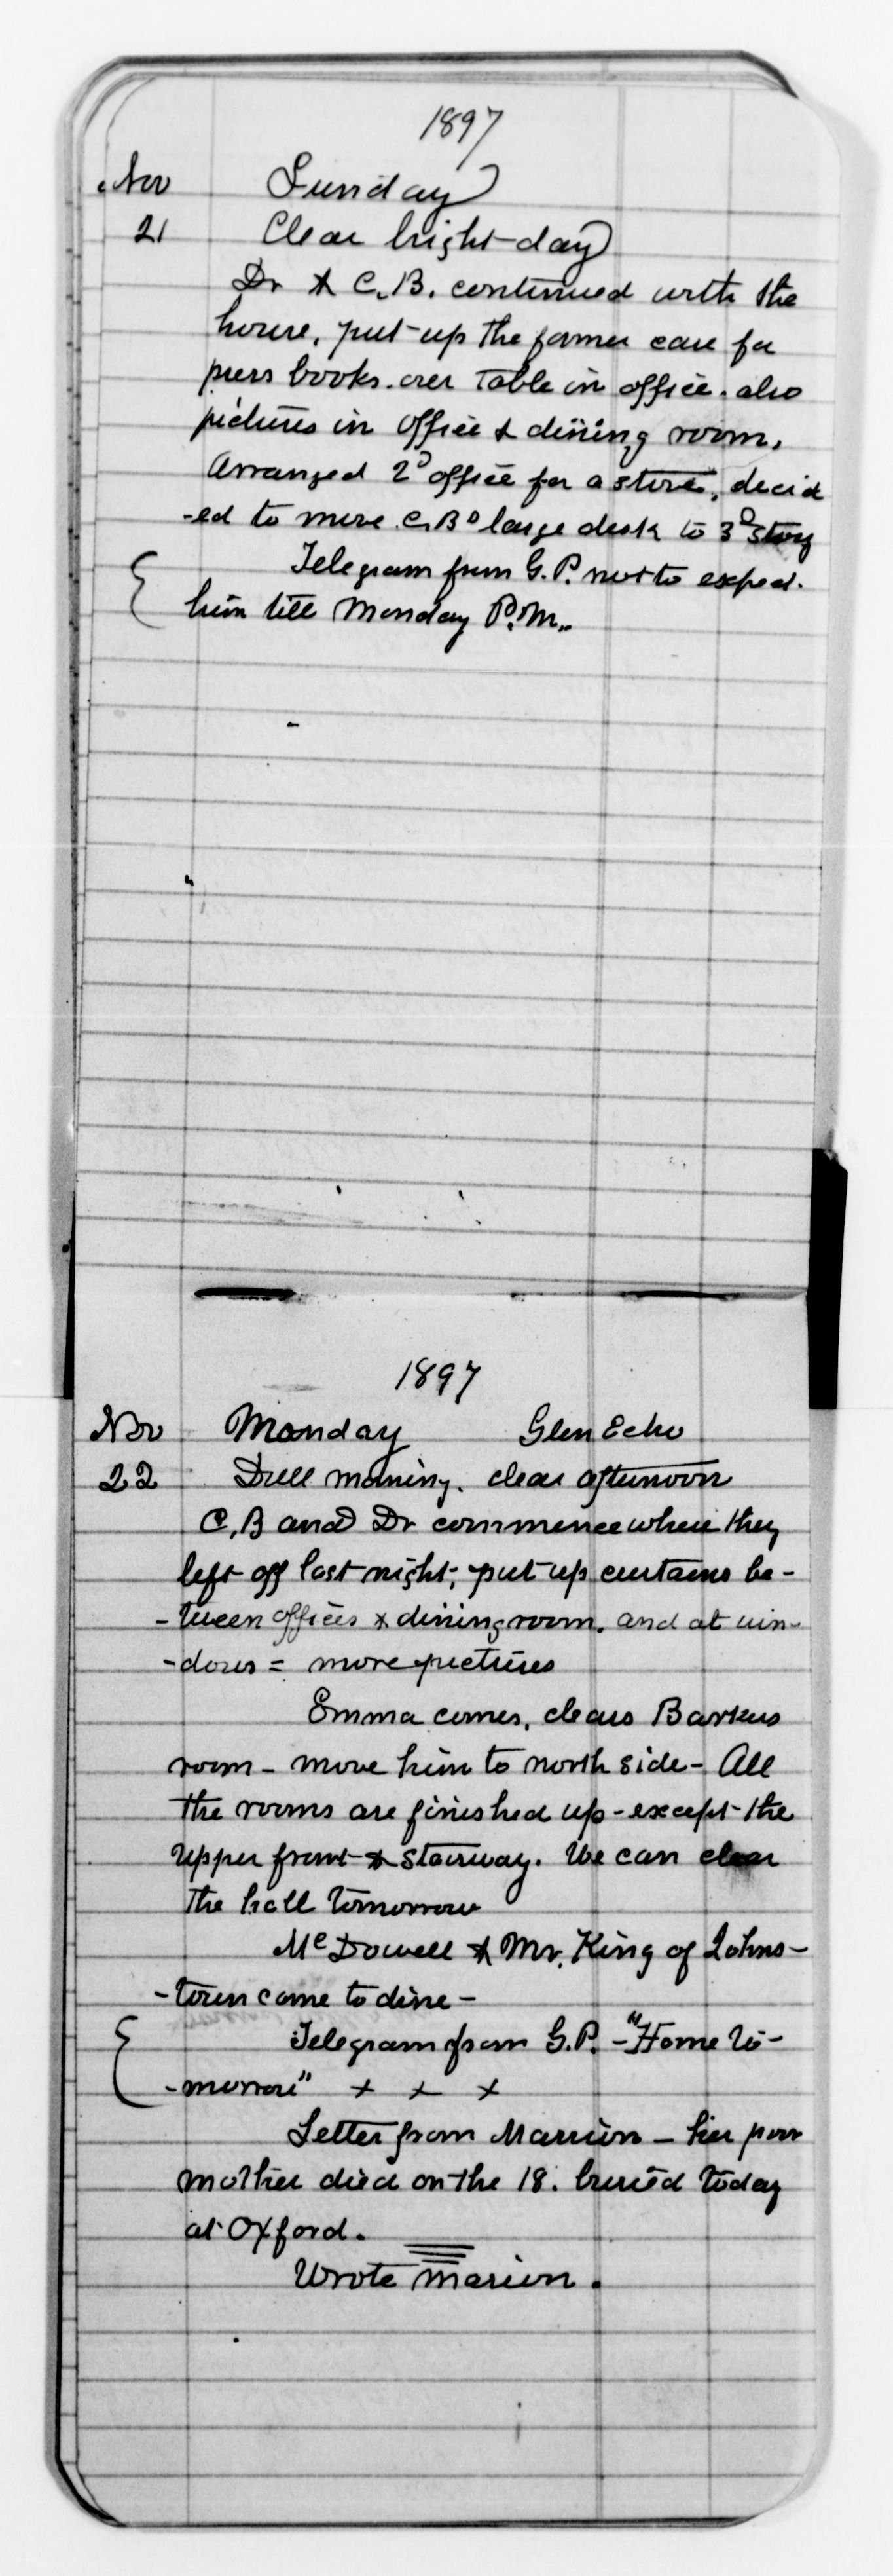 1897
Nov Sunday
21 Clear bright day
Dr & C.B. continued with the
house, put up the former case for
press books. over table in office. also
pictures in office & dining room.
Arranged 2D office for a store, decid
-ed to move C.Bs large desk to 3D story
Telegram from G.P. not to expect
him till Monday P.M..
1897
Nov Monday Glen Echo
22 Dull morning. clear afternoon
C,B and Dr commence where they
left off last night; put up curtains be-
-tween offices & dining room. and at win-
-dows = more pictures
Emma comes, clears Barkers
room - move him to north side - All
the rooms are finished up - except the
upper front & stairway. We can clear
the hall tomorrow
McDowell & Mr. King of Johns-
-town come to dine -
Telegram from G.P. - "Home to-
-morrow" x x x
Letter from Marrion - her poor
mother died on the 18. buried today
at Oxford.
Wrote Marion.